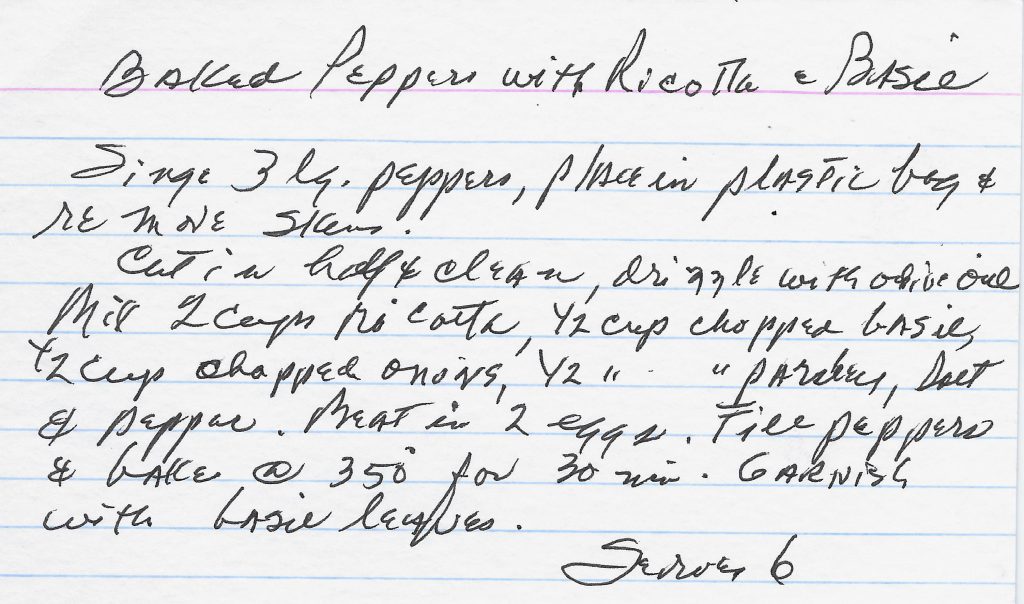 Baked Peppers with Ricotta & Basil
Singe 3 lg. peppers, place in plastic bag &
remove skins.
Cut in half & clean, drizzle with olive oil
Mix 2 cups ricotta, 1/2 cup chopped basil,
1/2 cup chopped onions, 1/2 " " parsley, Salt
& pepper. Beat in 2 eggs. Fill peppers
& bake @ 350° for 30 min. Garnish
with basil leaves.
Serves 6